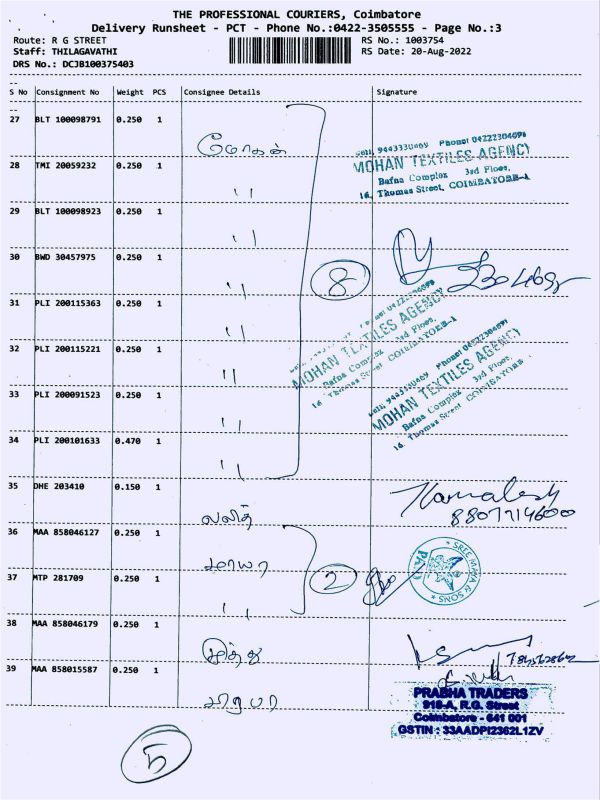 THE PROFESSIONAL COURIERS, Coimbatore
Delivery Runsheet - PCT - Phone No.:0422-3505555 - Page No.:3
Route: R G STREET
RS No.: 1003754
Staff: THILAGAVATHI
RS Date: 20-Aug-2022
DRS No.: DCJB100375403
S No Consignment No Weight PCS Consignee Details Signature
27 BLT 100098791 0.250 1 மோகன்
28 TMI 20059232 0.250 1 "
29 BLT 100098923 0.250 1 "
30 BWD 30457975 0.250 1 "
31 PLI 200115363 0.250 1 "
32 PLI 200115221 0.250 1 "
33 PLI 200091523 0.250 1 "
34 PLI 200101633 0.470 1 "
8
MOHAN TEXTILES AGENCY
Bafna Complex 3rd Floor,
16, Thomas Street, COIMBATORE-1
MOHAN TEXTILES AGENCY
Bafna Complex 3rd Floor,
16 Thomas Street COIMBATORE-1
MOHAN TEXTILES AGENCY
Bafna Complex 3rd Floor,
16, Thomas Street COIMBATORE
35 DHE 203410 0.150 1 லலித் Kamalesh
36 MAA 858046127 0.250 1 மாயா
37 MTP 281709 0.250 1 "
2
SREE MAYA & SONS
PAID
38 MAA 858046179 0.250 1 முத்து
39 MAA 858015587 0.250 1
PRABHA TRADERS
918-A, R.G. Street
Coimbatore - 641 001
GSTIN : 33AADPI2362L1ZV
5